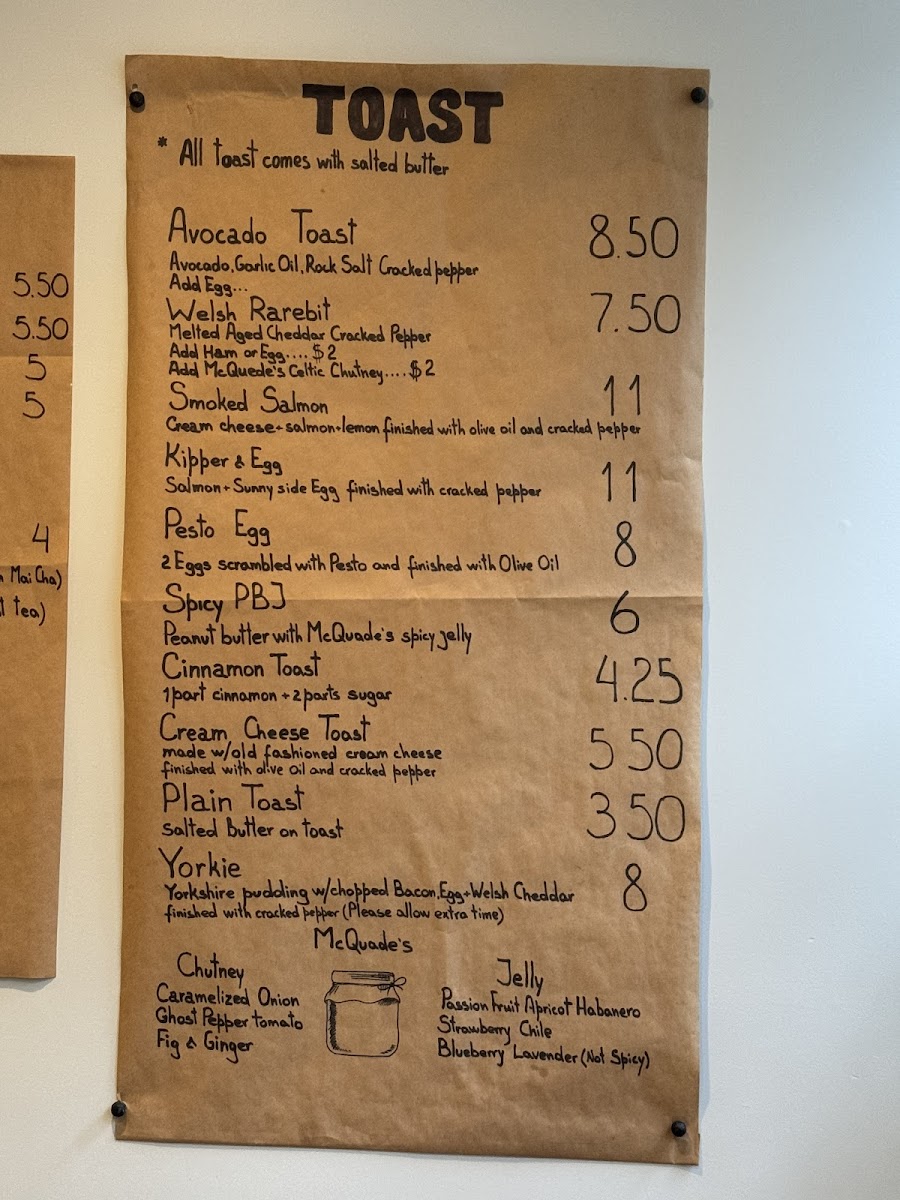 TOAST
* All toast comes with salted butter
Avocado Toast 8.50
Avocado, Garlic Oil, Rock Salt Cracked pepper
Add Egg...
Welsh Rarebit 7.50
Melted Aged Cheddar Cracked Pepper
Add Ham or Egg.... $2
Add McQuede's Celtic Chutney.... $2
Smoked Salmon 11
Cream cheese + salmon + lemon finished with olive oil and cracked pepper
Kipper & Egg 11
Salmon + Sunny side Egg finished with cracked pepper
Pesto Egg 8
2 Eggs scrambled with Pesto and finished with Olive Oil
Spicy PBJ 6
Peanut butter with McQuade's spicy jelly
Cinnamon Toast 4.25
1 part cinnamon + 2 parts sugar
Cream Cheese Toast 5 50
made w/old fashioned cream cheese
finished with olive oil and cracked pepper
Plain Toast 3 50
Salted Butter on toast
Yorkie 8
Yorkshire pudding w/chopped Bacon, Egg + Welsh Cheddar
finished with cracked pepper (Please allow extra time)
McQuade's
Chutney
Caramelized Onion
Ghost Pepper tomato
Fig & Ginger
Jelly
Passion Fruit Apricot Habanero
Strawberry Chile
Blueberry Lavender (Not Spicy)
5.50
5.50
5
5
4
Mai Cha)
tea)